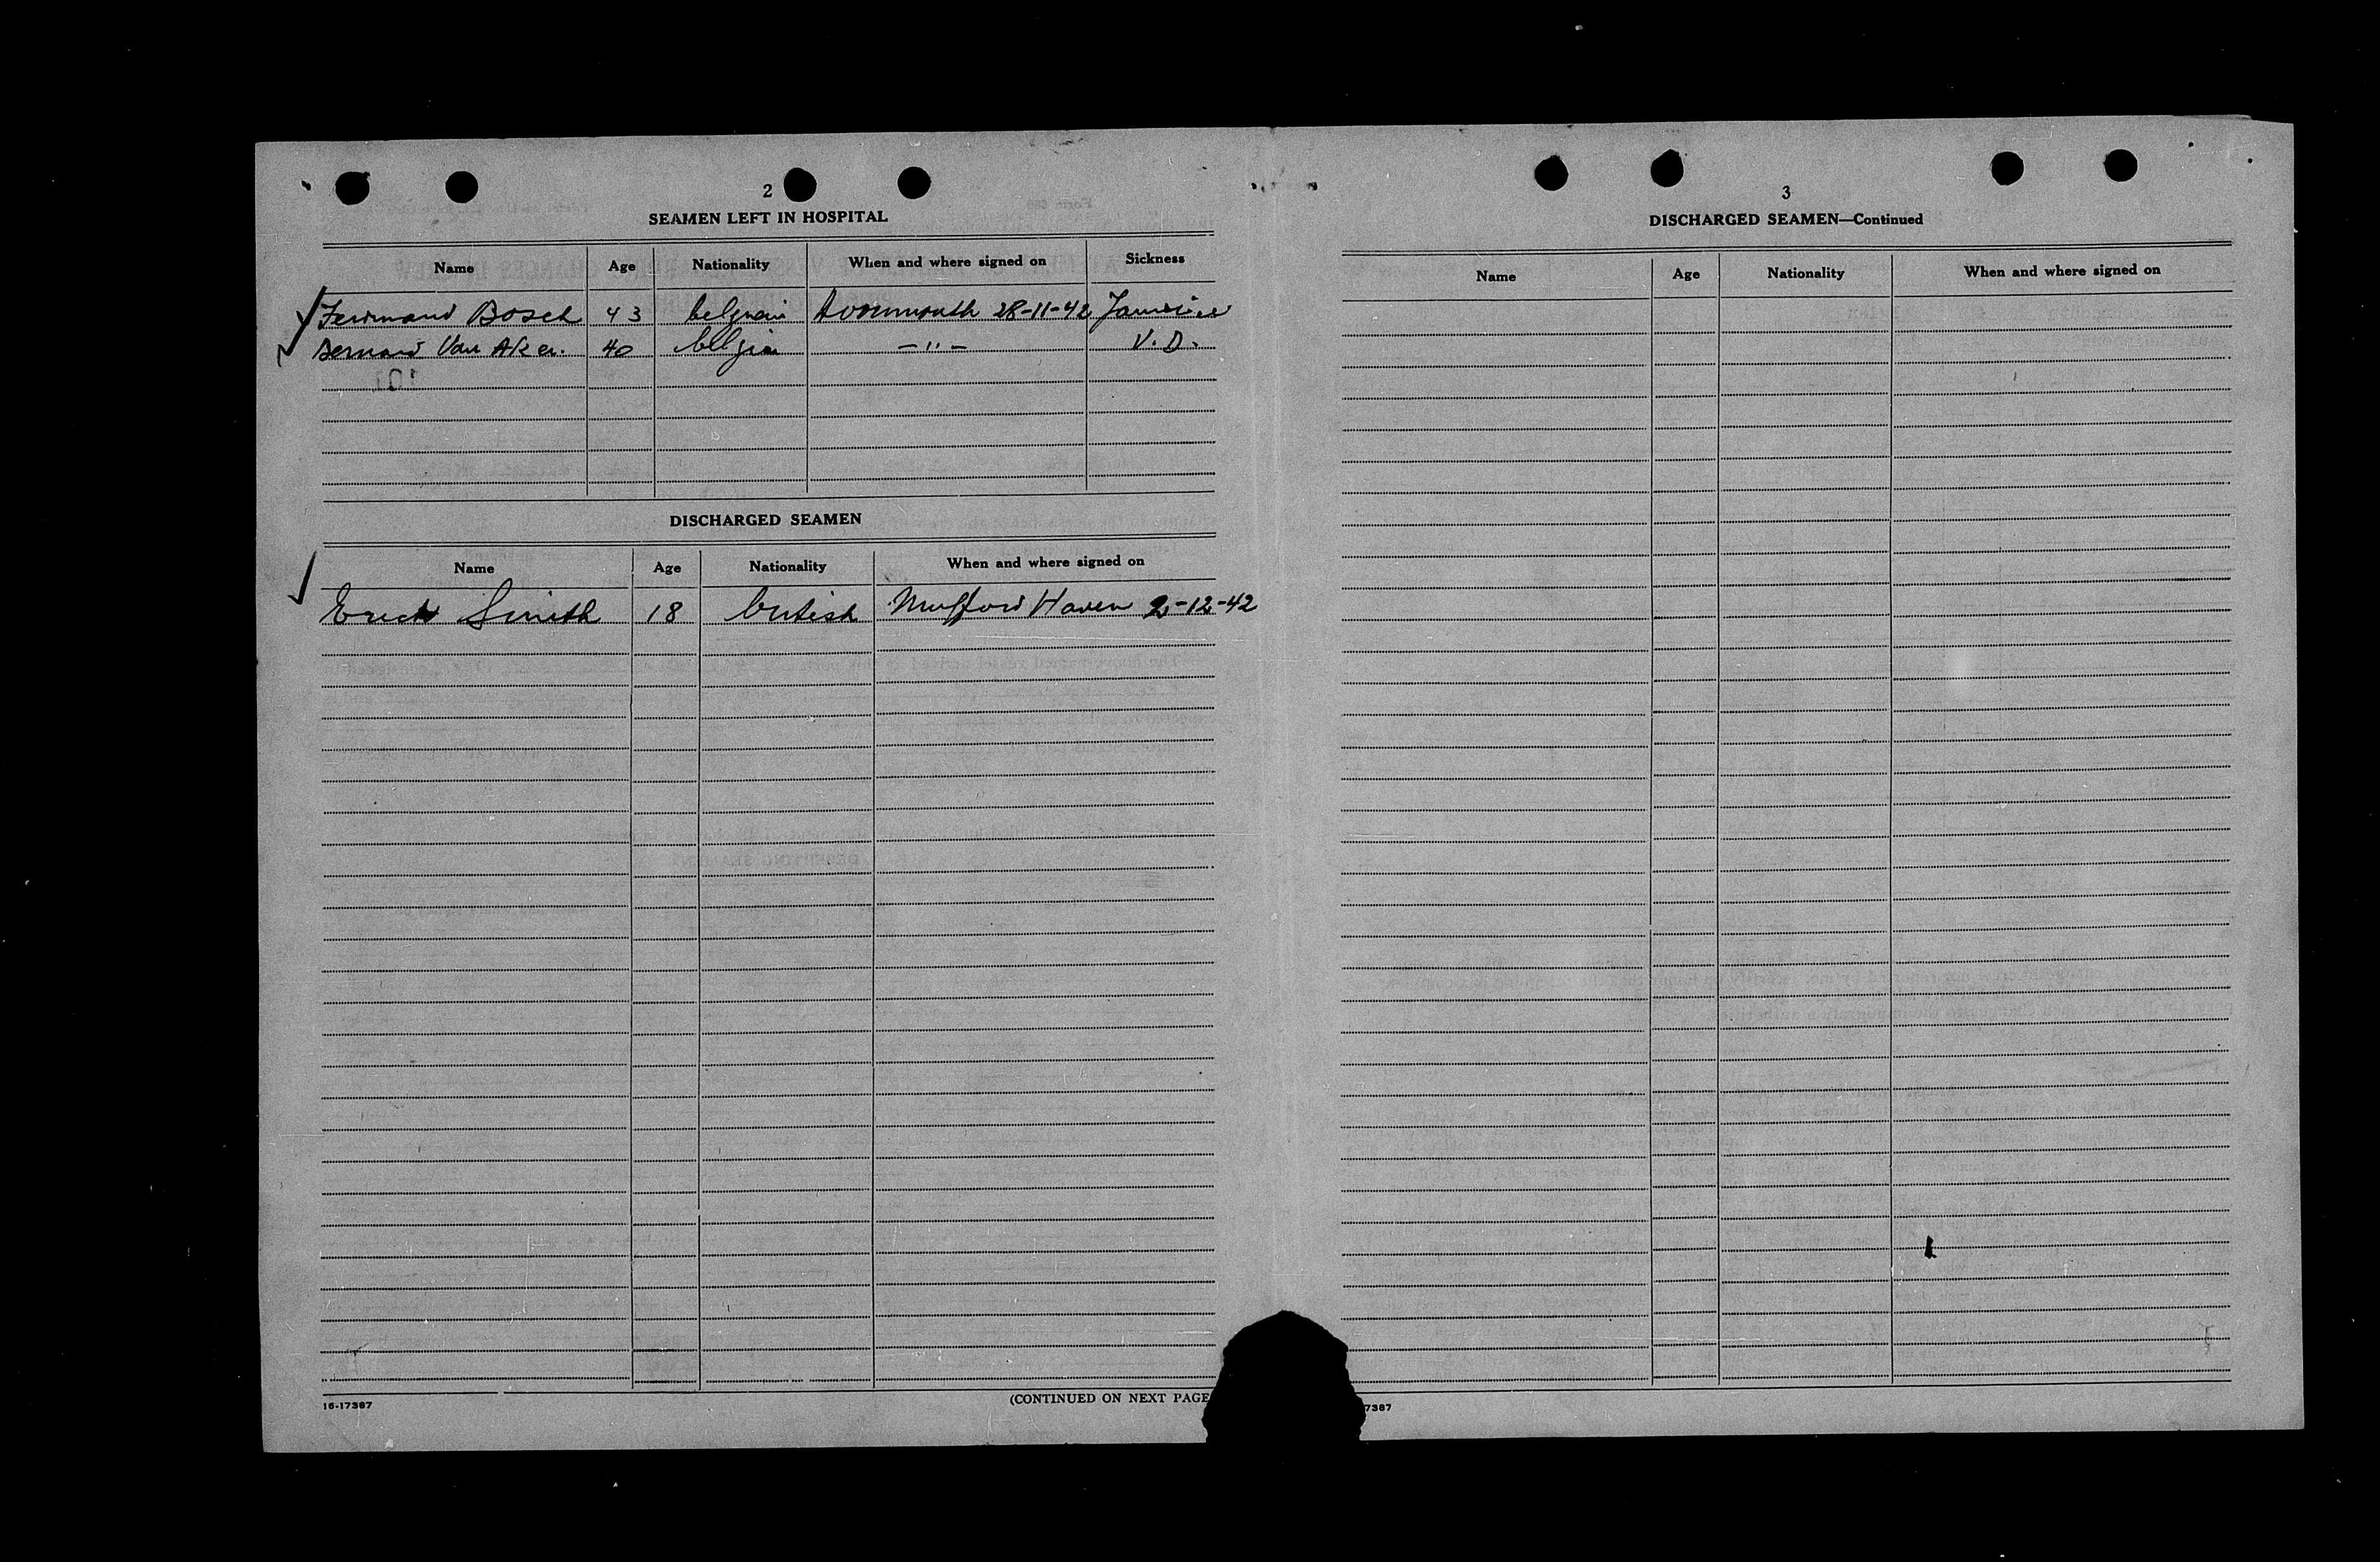 2
SEAMEN LEFT IN HOSPITAL
Name Age Nationality When and where signed on Sickness
Bosch 43 Avonmouth 28-11-42
Bernard Van Aker. 40 belgian —"— V.D.
DISCHARGED SEAMEN
Name Age Nationality When and where signed on
Smith 18 british Haven 2-12-42
(CONTINUED ON NEXT PAGE
16-17387
3
DISCHARGED SEAMEN—Continued
Name Age Nationality When and where signed on
7387